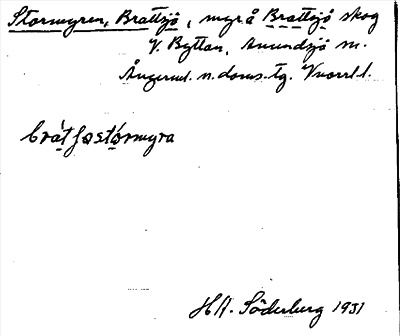 Stormyren, Brattsjö, myr å Brattsjö skog
V. Byttan, Anundsjö sn.
Ångerml. n. doms. tg. Vnorrl. l.
bråtʃøstórmyra
H.A. Söderberg 1931